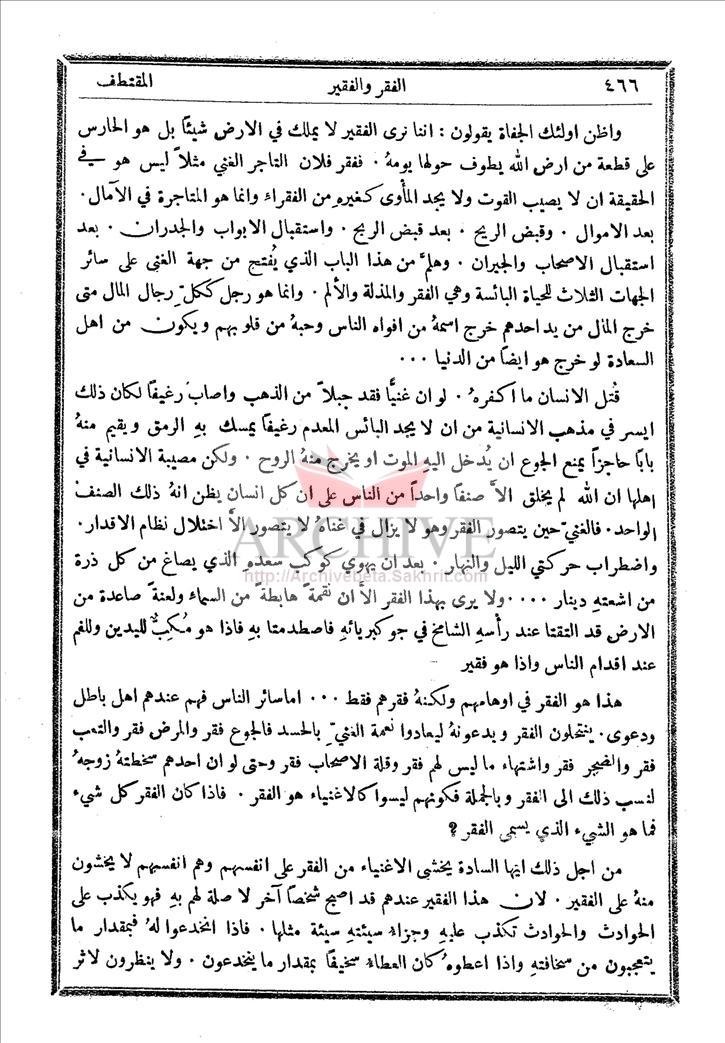 ٤٦٦ الفقر والفقير المقتطف
واظن اولئك الجفاة يقولون : اننا نرى الفقير لا يملك في الارض شيئًا بل هو الحارس
على قطعة من ارض الله يطوف حولها يومهُ . ففقر فلان التاجر الغني مثلاً ليس هو في
الحقيقة ان لا يصيب القوت ولا يجد المأوى كغيرهِ من الفقراء وانما هو المتاجرة في الآمال .
بعد الاموال . وقبض الريح . بعد قبض الربح . واستقبال الابواب والجدران . بعد
استقبال الاصحاب والجيران . وهلمَّ من هذا الباب الذي يُفتح من جهة الغنى على سائر
الجهات الثلاث للحياة البائسة وهي الفقر والمذلة والألم . وانما هو رجل ككلِّ رجال المال متى
خرج المال من يد احدهم خرج اسمهُ من افواه الناس وحبهُ من قلوبهم ويكون من اهل
السعادة لو خرج هو ايضاً من الدنيا ...
قُتل الانسان ما اكفرهُ . لو ان غنيًّا فقد جبلاً من الذهب واصاب رغيفًا لكان ذلك
ايسر في مذهب الانسانية من ان لا يجد البائس المعدم رغيفًا يمسك بهِ الرمق و يقيم منهُ
بابًا حاجزاً يمنع الجوع ان يُدخل اليهِ الموت او يخرج منهُ الروح . ولكن مصيبة الانسانية في
اهلها ان الله لم يخلق الاَّ صنفًا واحداً من الناس على ان كل انسان يظن انهُ ذلك الصنف
الواحد . فالغنيّ حين يتصور الفقر وهو لا يزال في غناهُ لا يتصور الاَّ اختلال نظام الاقدار .
واضطراب حركتي الليل والنهار . بعد ان يهوي كوكب سعدهِ الذي يصاغ من كل ذرة
من اشعتهِ دينار .... ولا يرى بهذا الفقر الاَّ ان نقمةً هابطةً من السماء ولعنةً صاعدة من
الارض قد التقتا عند رأسهِ الشامخ في جو كبريائهِ فاصطدمتا بهِ فاذا هو مُكبٌّ لليدين وللفم
عند اقدام الناس واذا هو فقير
هذا هو الفقر في اوهامهم ولكنهُ فقرهم فقط ... اما سائر الناس فهم عندهم اهل باطل
ودعوى . ينتحلون الفقر ويدعونهُ ليعادوا نعمة الغنيّ بالحسد فالجوع فقر والمرض فقر والتعب
فقر والضجر فقر واشتهاء ما ليس لهم فقر وقلة الاصحاب فقر وحتى لو ان احدهم سخطتهُ زوجهُ
لنسب ذلك الى الفقر وبالجملة فكونهم ليسوا كالاغنياء هو الفقر . فاذا كان الفقر كل شيء
فما هو الشيء الذي يسمى الفقر ؟
من اجل ذلك ايها السادة يخشى الاغنياء من الفقر على انفسهم وهم انفسهم لا يخشون
منهُ على الفقير . لان هذا الفقير عندهم قد اصبح شخصًا آخر لا صلة لهم بهِ فهو يكذب على
الحوادث والحوادث تكذب عليهِ وجزاء سيئتهِ سيئة مثلها . فاذا انخدعوا لهُ فبمقدار ما
يتعجبون من سخافتهِ واذا اعطوهُ كان العطاء سخيفًا بمقدار ما ينخدعون . ولا ينظرون لاثر
ARCHIVE
http://Archivebeta.Sakhrit.com